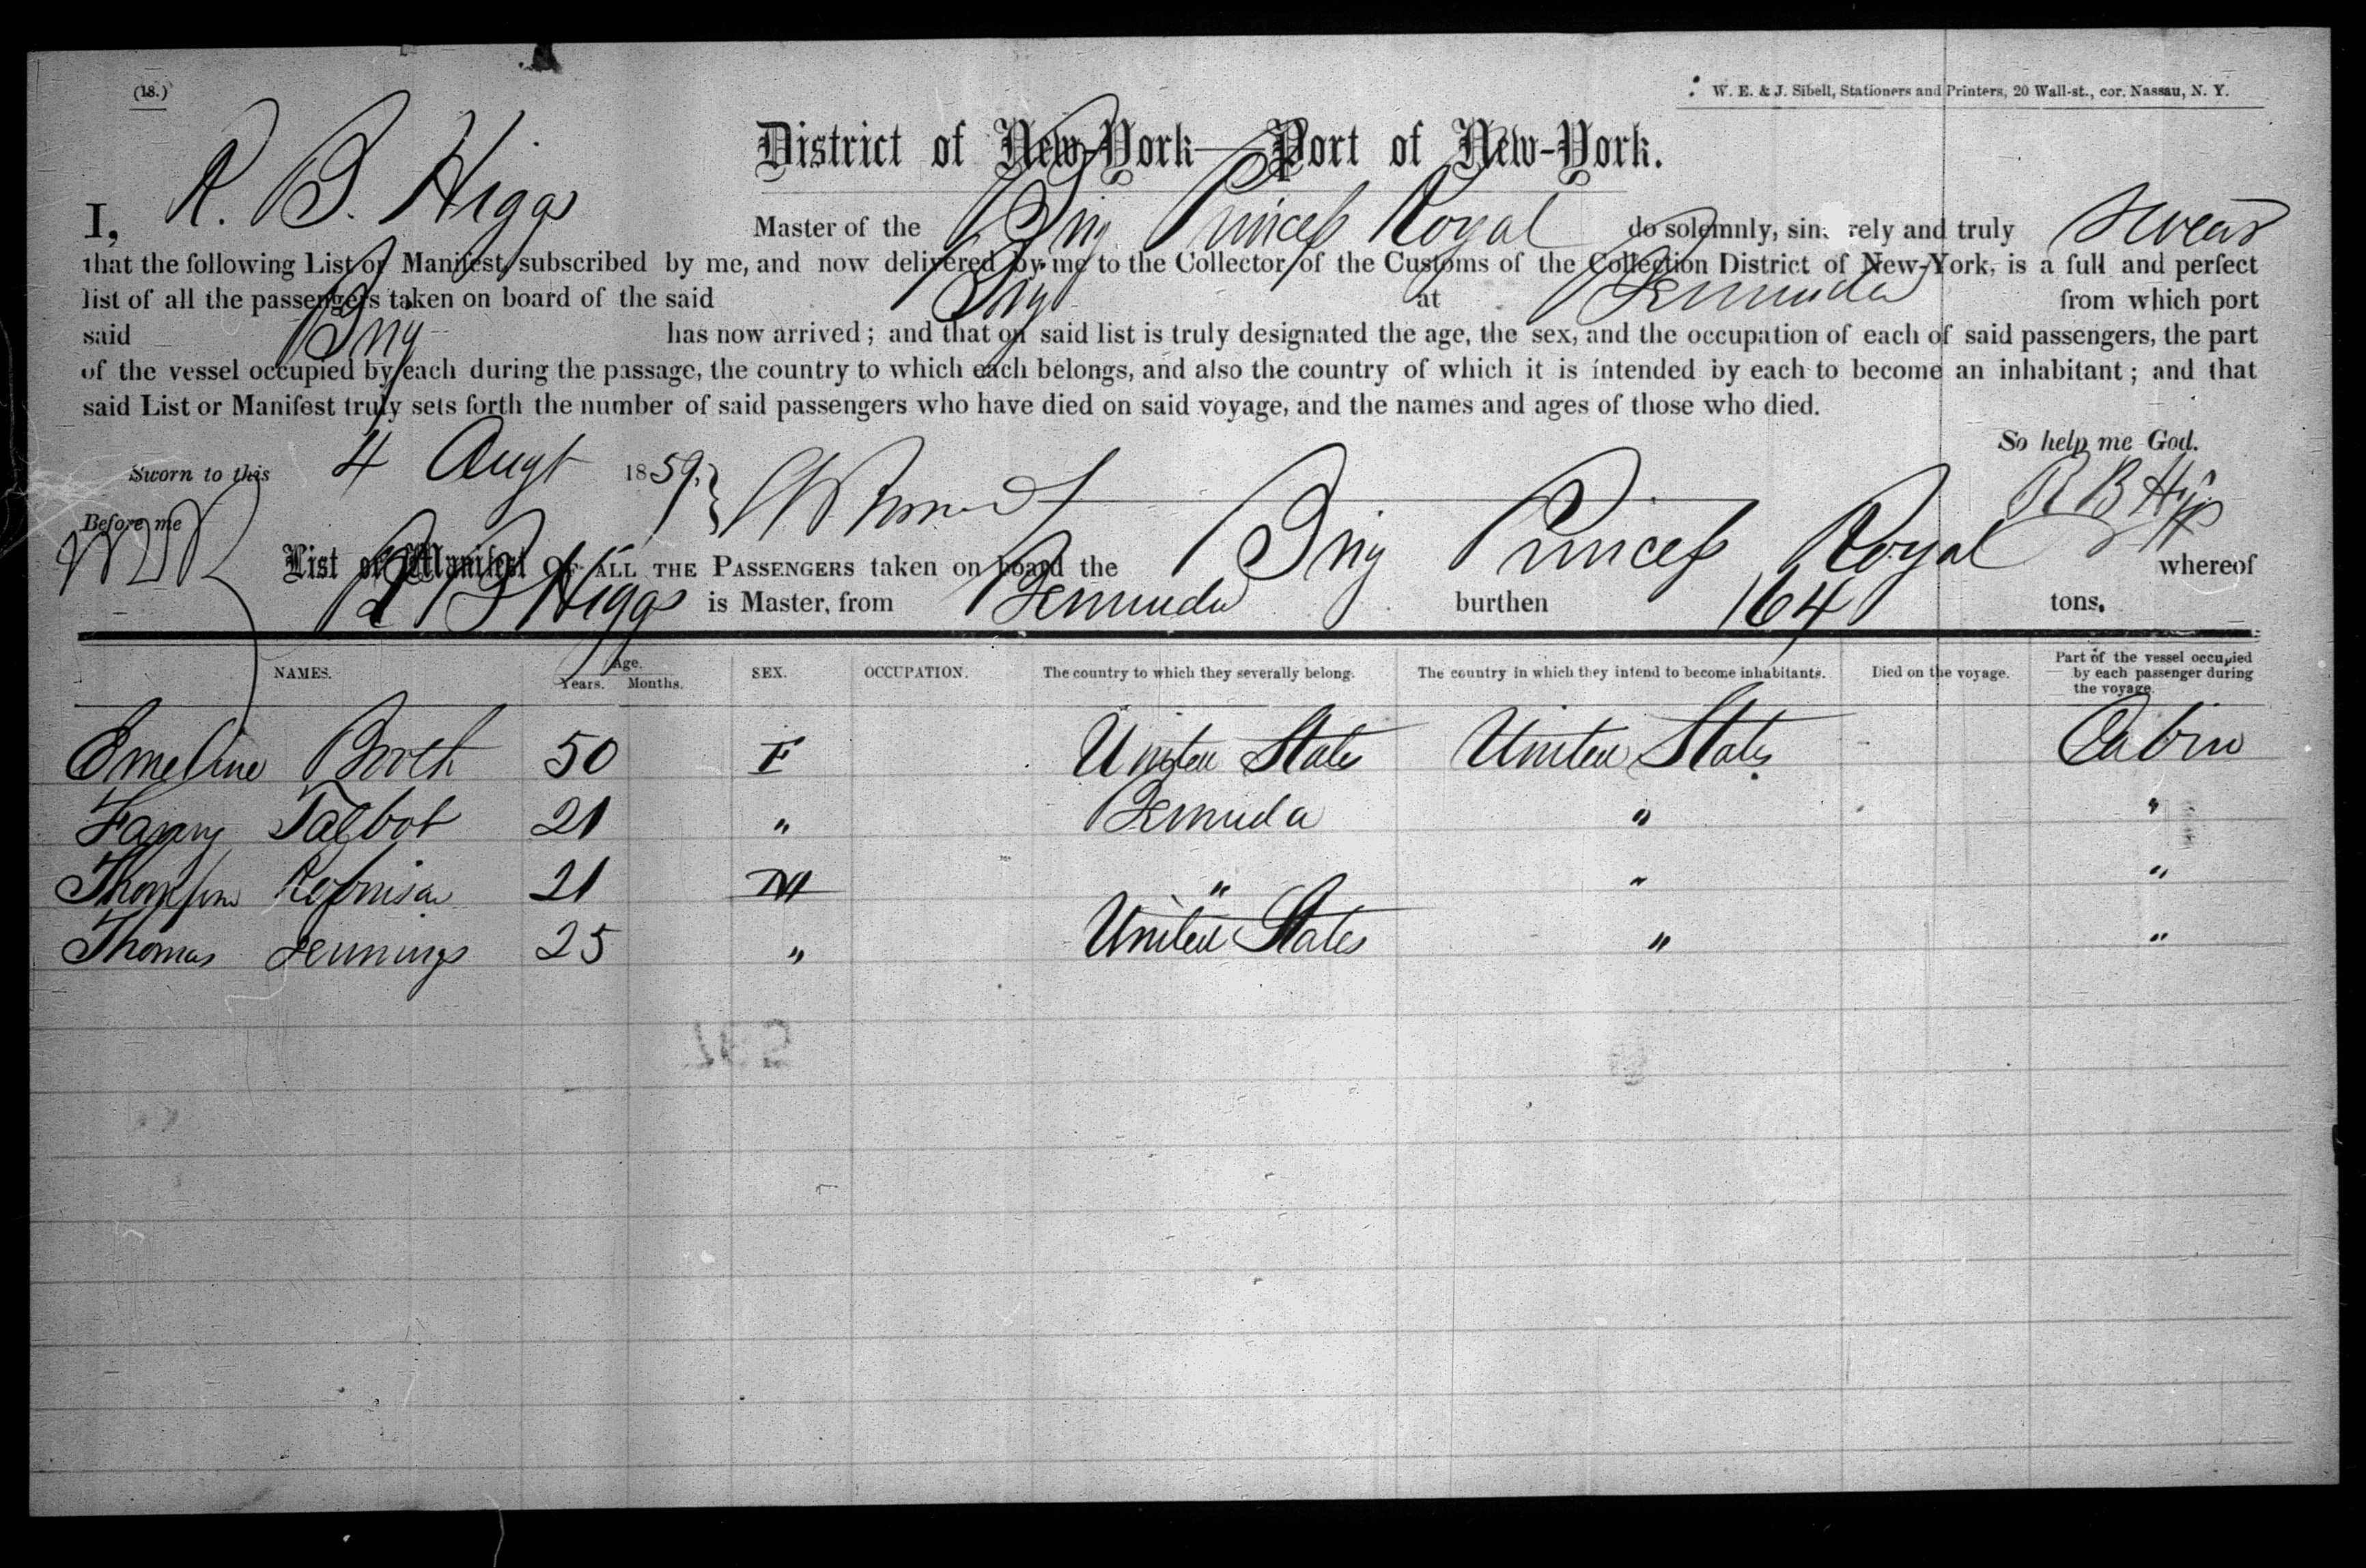 (18.)
W. E. & J. Sibell, Stationers and Printers, 20 Wall-st., cor. Nassau, N. Y.
District of New-York—Port of New-York.
I, R. B. Higgs Master of the Brig Princess Royal do solemnly, sincerely and truly swear
that the following List or Manifest, subscribed by me, and now delivered by me to the Collector of the Customs of the Collection District of New-York, is a full and perfect
list of all the passengers taken on board of the said Brig at Bermuda from which port
said Brig has now arrived; and that on said list is truly designated the age, the sex, and the occupation of each of said passengers, the part
of the vessel occupied by each during the passage, the country to which each belongs, and also the country of which it is intended by each to become an inhabitant; and that
said List or Manifest truly sets forth the number of said passengers who have died on said voyage, and the names and ages of those who died.
So help me God.
Sworn to this 4 Augt 1859. R B Higgs
Before me
List or Manifest OF ALL THE PASSENGERS taken on board the Brig Princess Royal whereof
R B Higgs is Master, from Bermuda burthen 164 tons.
NAMES. Age. Years. Months. SEX. OCCUPATION. The country to which they severally belong. The country in which they intend to become inhabitants. Died on the voyage. Part of the vessel occupied by each passenger during the voyage.
Emeline Booth 50 F United States United States Cabin
Fanny Talbot 21 " Bermuda " "
Thompson 21 M " " "
Thomas Jennings 25 " United States " "